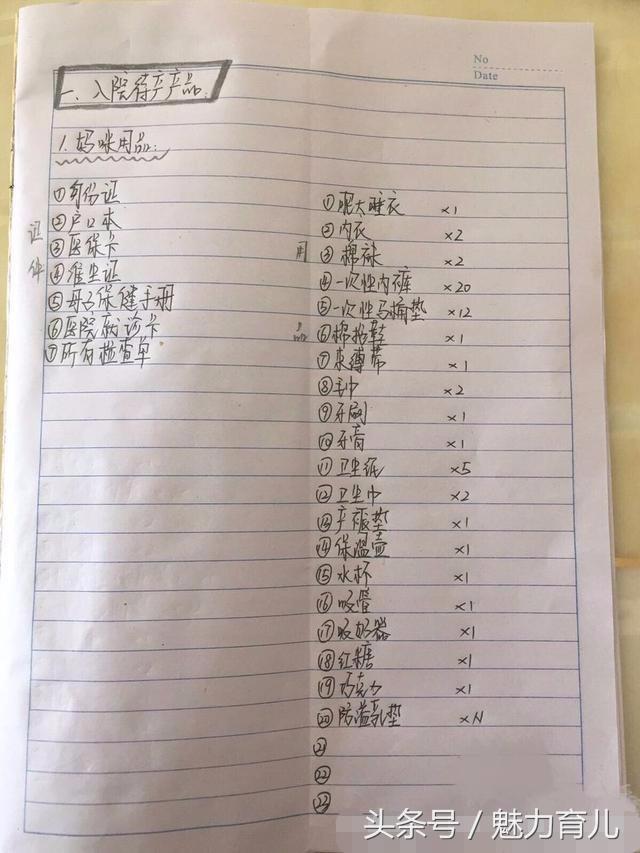 No
Date
一、入院待产产品
1.妈咪用品：
证件
①身份证
②户口本
③医保卡
④准生证
⑤母子保健手册
⑥医院就诊卡
⑦所有检查单
用品
①肥大睡衣 ×1
②内衣 ×2
③棉袜 ×2
④一次性内裤 ×20
⑤一次性马桶垫 ×12
⑥棉拖鞋 ×1
⑦束缚带 ×1
⑧毛巾 ×2
⑨牙刷 ×1
⑩牙膏 ×1
⑪卫生纸 ×5
⑫卫生巾 ×2
⑬产褥垫 ×1
⑭保温壶 ×1
⑮水杯 ×1
⑯吸管 ×1
⑰吸奶器 ×1
⑱红糖 ×1
⑲巧克力 ×1
⑳防溢乳垫 ×N
㉑
㉒
㉓
头条号／魅力育儿